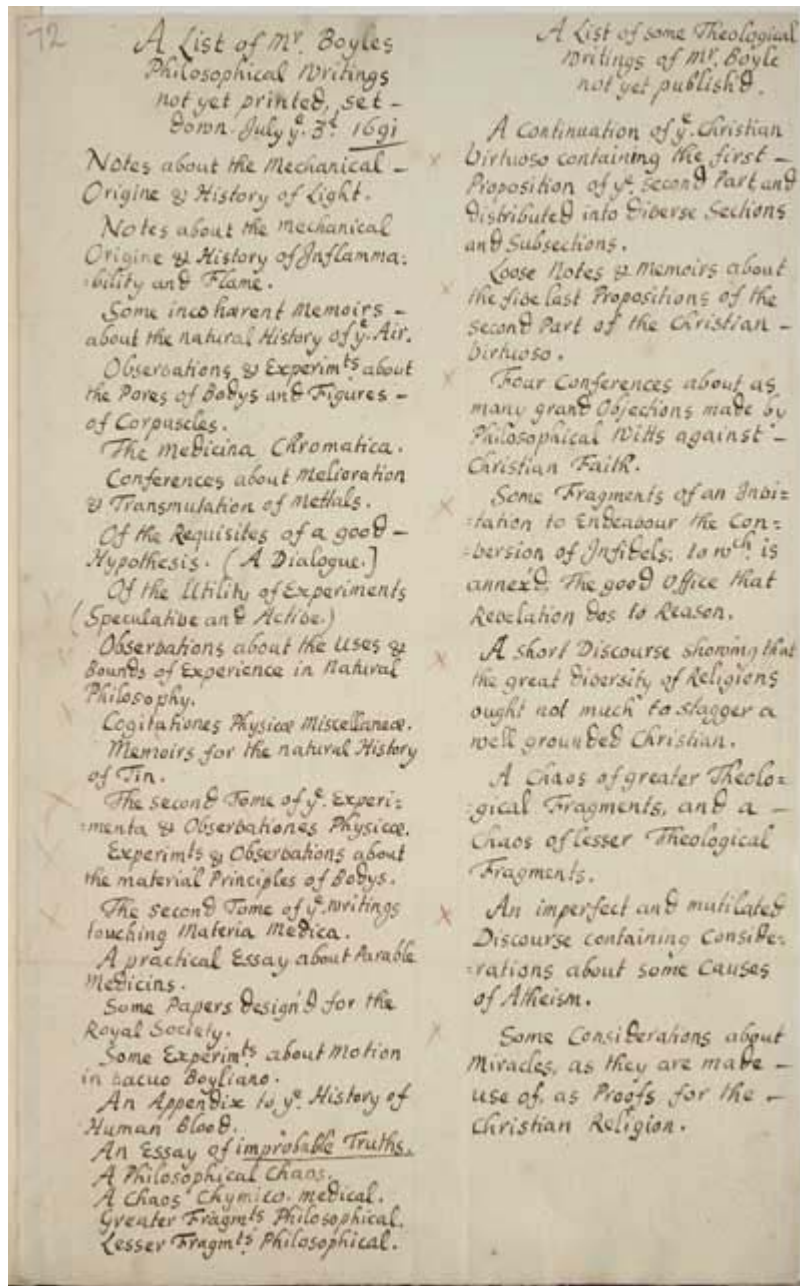 72
A List of Mr. Boyles
Philosophical Writings
not yet printed, set -
down July ye. 3d. 1691
Notes about the Mechanical -
Origine & History of Light.
Notes about the mechanical
Origine & History of Inflamma:
:bility and Flame.
Some incohærent Memoirs -
about the natural History of ye. Air.
Observations & Experimts about
the Pores of Bodys and Figures -
of Corpuscles.
The Medicina Chromatica.
Conferences about Melioration
& Transmutation of Mettals.
Of the Requisites of a good -
Hypothesis. (A Dialogue.]
Of the Utility of Experiments
(Speculative and Active.)
Observations about the Uses &
Bounds of Experience in Natural
Philosophy.
Cogitationes Physicæ Miscellaneæ.
Memoirs for the natural History
of Tin.
The second Tome of ye. Experi:
:menta & Observationes Physicæ.
Experimts & Observations about
the material Principles of Bodys.
The second Tome of ye. writings
touching Materia Medica.
A practical Essay about Parable
Medicins.
Some Papers design'd for the
Royal Society.
Some Experimts about Motion
in vacuo Boyliano.
An Appendix to ye. History of
Human Blood.
An Essay of improbable Truths.
A Philosophical Chaos.
A Chaos Chymico-medical.
Greater Fragmts Philosophical.
Lesser Fragmts Philosophical.
A List of some Theological
Writings of Mr. Boyle
not yet publish'd.
A Continuation of ye. Christian
Virtuoso containing the first -
Proposition of ye. second Part and
distributed into diverse Sections
and Subsections.
Loose Notes & Memoirs about
the five last Propositions of the
second Part of the Christian -
Virtuoso.
Four Conferences about as
many grand Objections made by
Philosophical Witts against -
Christian Faith.
Some Fragments of an Invi:
:tation to Endeavour the Con:
:version of Infidels; to wch. is
annex'd, The good Office that
Revelation dos to Reason.
A short Discourse showing that
the great diversity of Religions
ought not much to stagger a
well grounded Christian.
A Chaos of greater Theolo:
:gical Fragments, and a -
Chaos of lesser Theological
Fragments.
An imperfect and mutilated
Discourse containing Conside:
:rations about some Causes
of Atheism.
Some Considerations about
Miracles, as they are made -
use of, as Proofs for the -
Christian Religion.